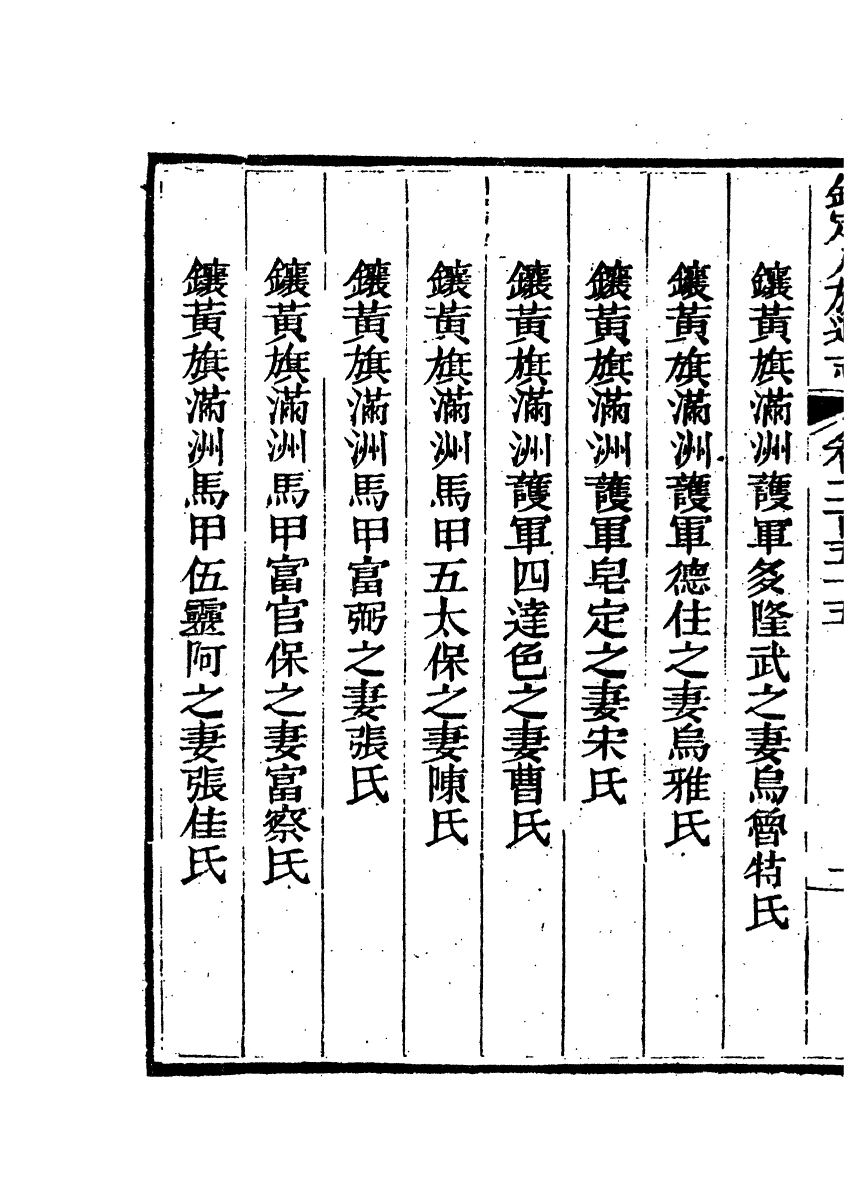 欽定八旗通志 卷二百五十五 二
鑲黃旗滿洲護軍多隆武之妻烏魯特氏
鑲黃旗滿洲護軍德住之妻烏雅氏
鑲黃旗滿洲護軍皂定之妻宋氏
鑲黃旗滿洲護軍四達色之妻曹氏
鑲黃旗滿洲馬甲五太保之妻陳氏
鑲黃旗滿洲馬甲富弼之妻張氏
鑲黃旗滿洲馬甲富官保之妻富察氏
鑲黃旗滿洲馬甲伍靈阿之妻張佳氏